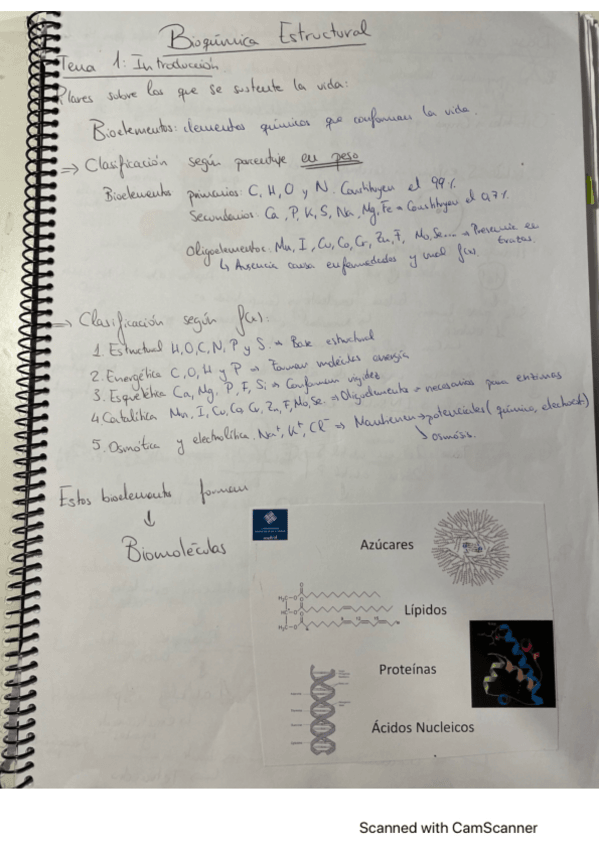 Bioquímica Estructural
Tema 1: Introducción.
Pilares sobre los que se sustente la vida:
Bioelementos: elementos químicos que conforman la vida.
=> Clasificación según porcentaje en peso
Bioelementos primarios: C, H, O y N. Constituyen el 99%
Secundarios: Ca, P, K, S, Na, Mg, Fe → Constituyen el 0,7%
Oligoelementos: Mn, I, Cu, Co, Cr, Zn, F, Mo, Se... → Presencia en trazas.
↳ Ausencia causa enfermedades y mal f(x).
=> Clasificación según f(x):
1. Estructual H, O, C, N, P y S. → Base estructual
2. Energética C, O, H y P → Forman moléculas energía
3. Esquelética Ca, Mg, P, F, Si → Conforman rigidez
4. Catalítica Mn, I, Cu, Co, Cr, Zn, F, Mo, Se. → Oligoelementos → necesarios para enzimas
5. Osmótica y electrolítica. Na⁺, K⁺, Cl⁻ => Mantienen → potenciales (químico, electrost.)
↘ osmosis.
Estos bioelementos forman
↓
Biomoléculas
Azúcares
Lípidos
Proteínas
Ácidos Nucleicos
Scanned with CamScanner